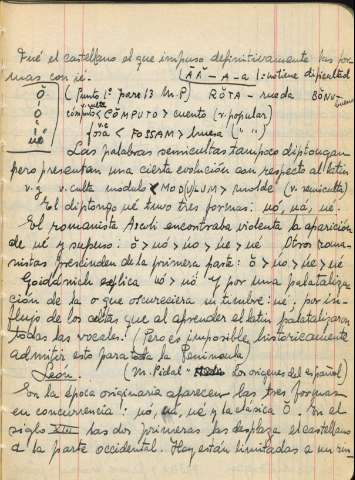 Fué el castellano el que impuso definitivamente las for-
mas con ié. (ĀĂ - A - a) = no tiene dificultad
Ŏ (Punto 1º parr. 13 M.P) RŎTA - rueda BŎNU -
ŏ cómputo < CŎMPUTO > cuento (v. popular)
v. culta
ŏ fosa < FOSSAM > huesa (" ")
v.c
ue
Las palabras semicultas tampoco diptongan
pero presentan una cierta evolución con respecto al latín
v.g v. culta modulo < MOD(U)LUM > molde (v. semiculta)
El diptongo ué tuvo tres formas: uó, uá, ué.
El romanista Ascoli encontraba violenta la aparición
de ué y supuso: ŏ > uo > úo > úe > ué Otros roma-
nistas prescinden de la primera parte: ŏ > uo > ue > ué
Goidanich explica uó > uö y por una palataliza-
ción de la o que oscureciera un timbre: ué, por in-
flujo de los celtas que al aprender el latín palatalizaron
todas las vocales. (Pero es imposible, historicamente
admitir esto para toda la Península)
León. (M. Pidal " Los origenes del español)
En la época originaria aparecen las tres formas
en concurrencia: uó, uá, ué y la clasica ŏ. En el
siglo XIII las dos primeras las desplaza el castellano
a la parte occidental. Hoy están limitadas a un